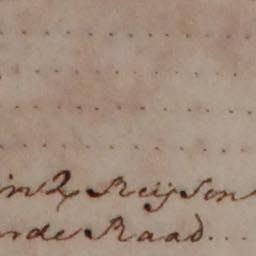 in2 Reijson
nde Raad....